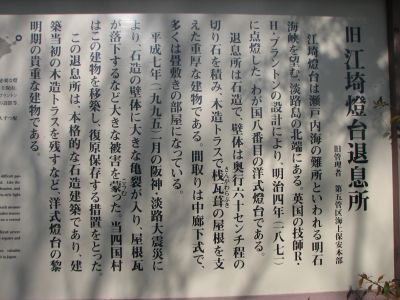 旧江埼燈台退息所
旧管理者 第五管区海上保安本部
江埼燈台は瀬戸内海の難所といわれる明石
海峡を望む、淡路島の北端にある。英国の技師R・
H・ブラントンの設計により、明治四年(一八七一)
に点燈した、わが国八番目の洋式燈台である。
退息所は石造で、壁体は奥行六十センチ程の
切り石を積み、木造トラスで桟瓦葺の屋根を支
さんがわらぶき
えた重厚な建物である。間取りは中廊下式で、
多くは畳敷きの部屋になっている。
平成七年(一九九五)一月の阪神・淡路大震災に
より、石造の壁体に大きな亀裂が入り、屋根瓦
が落下するなど大きな被害を蒙った。当四国村
はこの建物を移築し、復原保存する措置をとった。
この退息所は、本格的な石造建築であり、建
築当初の木造トラスを残すなど、洋式燈台の黎
明期の貴重な建物である。